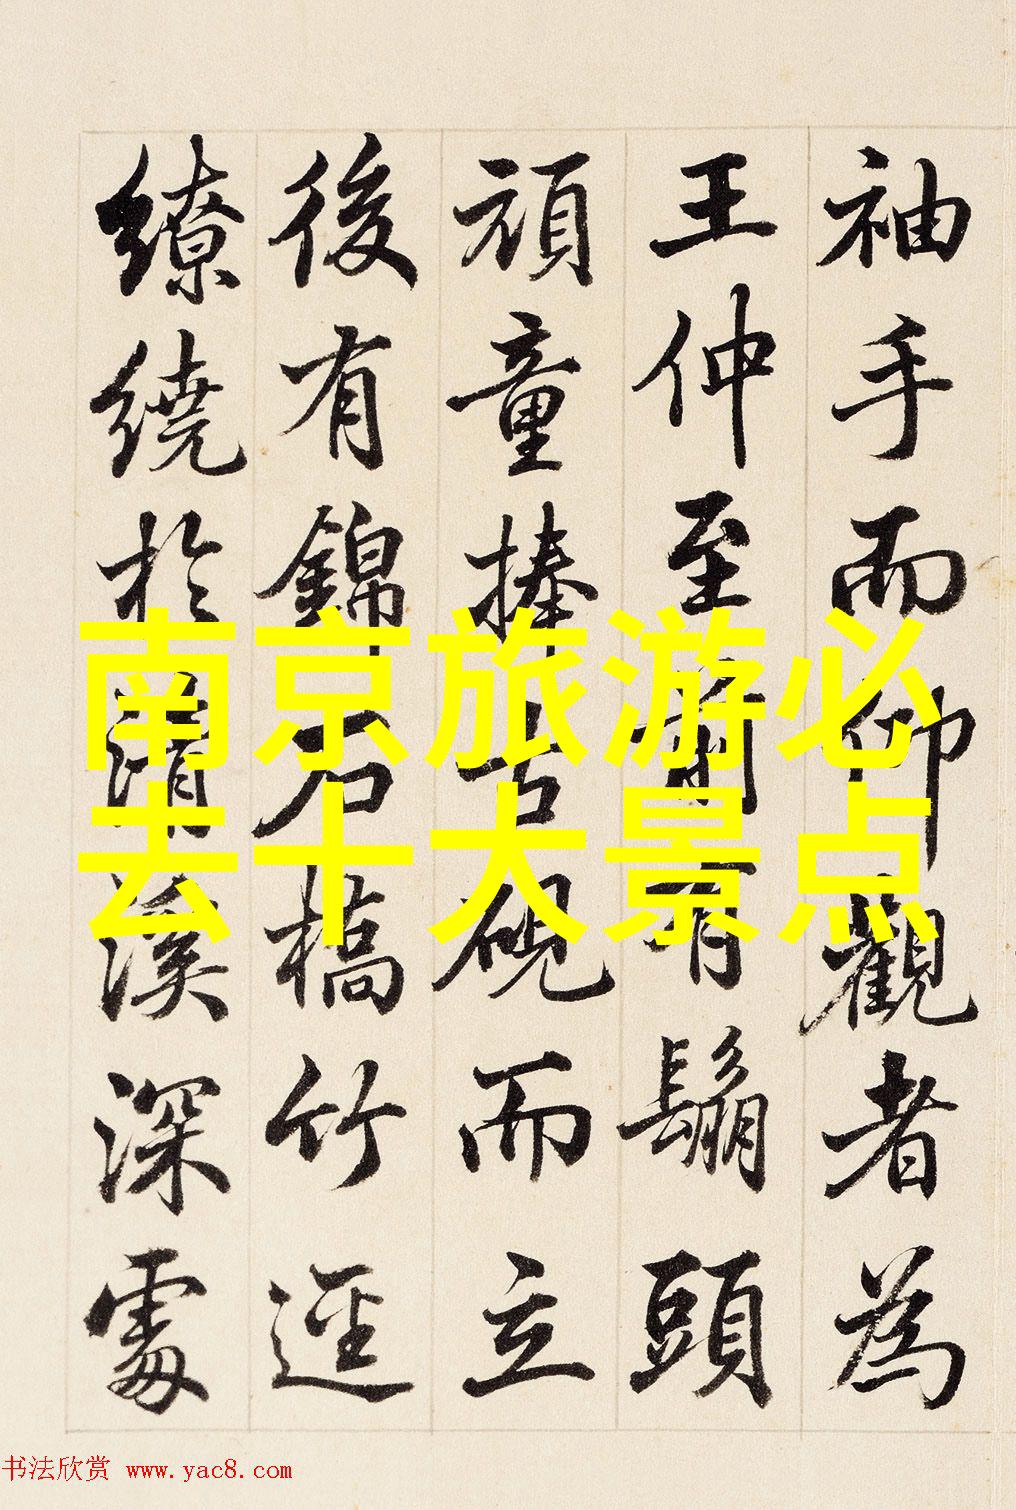 袖手而仰觀者為
王仲至前有鬅頭
頑童捧古硯而立
後有錦石橋竹逕
繚繞於清溪深處
南京旅游必
去十大景点
书法欣赏 www.yac8.com